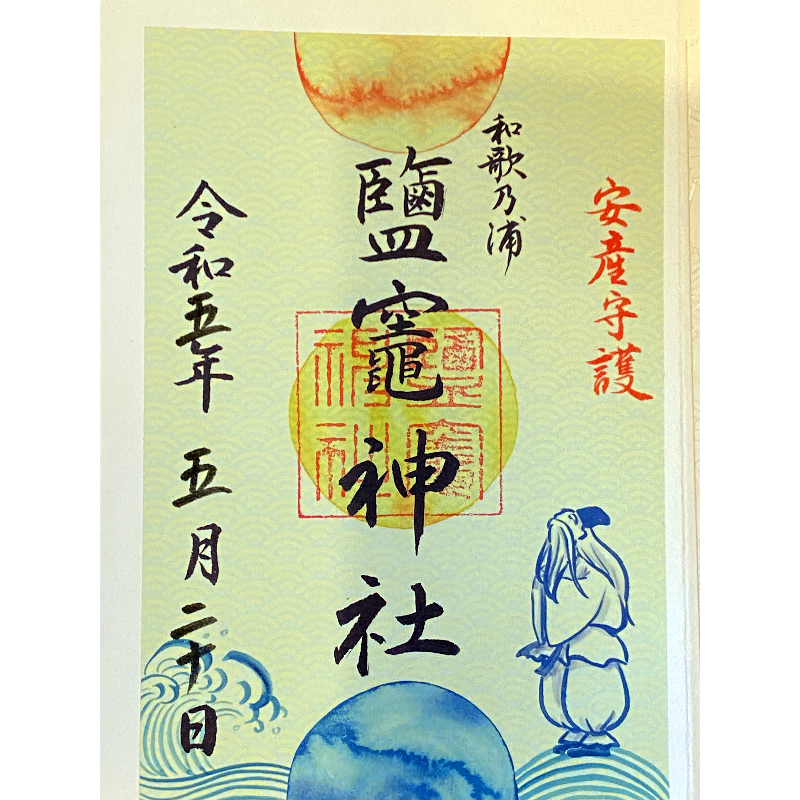 安産守護
和歌乃浦
鹽竈神社
令和五年 五月二十日